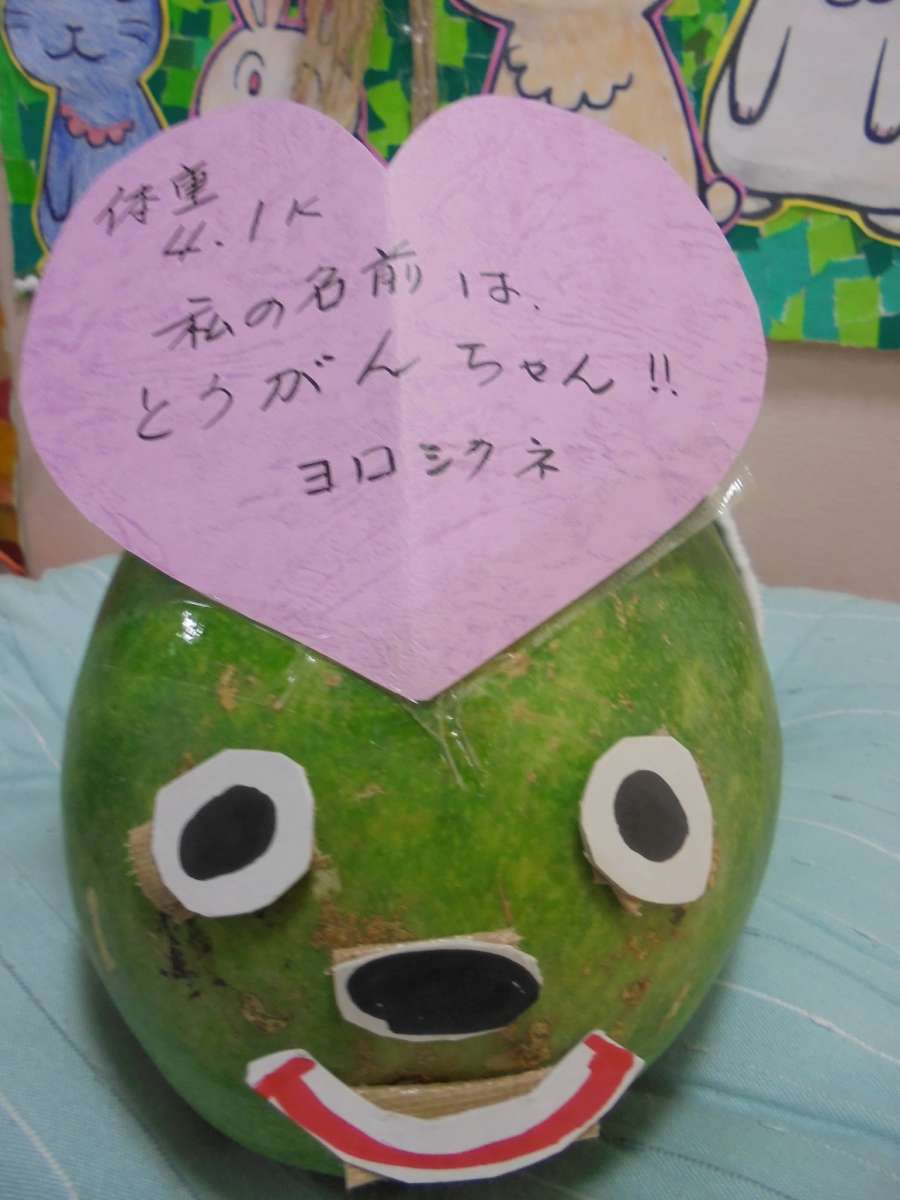 体重
4.1K
私の名前は、
とうがんちゃん!!
ヨロシクネ